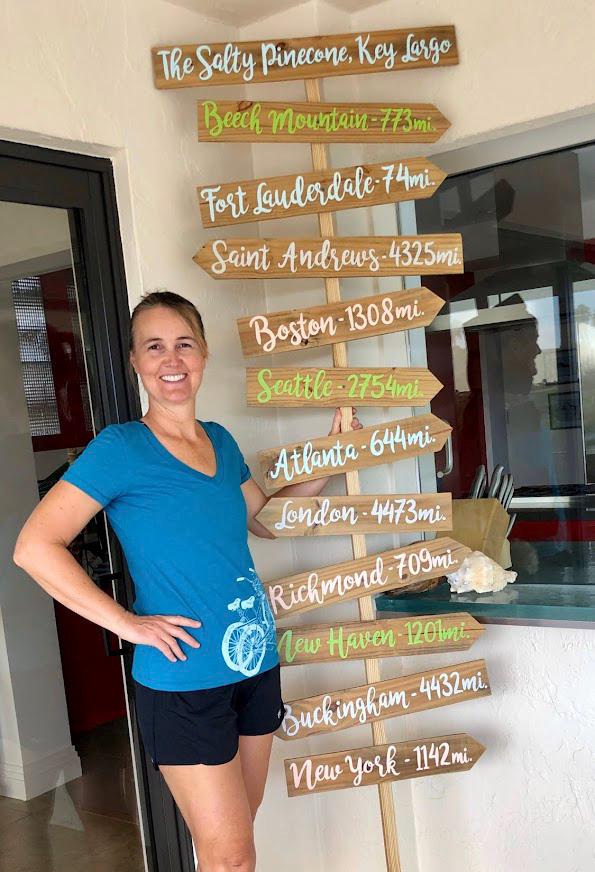 The Salty Pinecone, Key Largo
Beech Mountain - 773mi.
Fort Lauderdale - 74mi.
Saint Andrews - 4325mi.
Boston - 1308mi.
Seattle - 2754mi.
Atlanta - 644mi.
London - 4473mi.
Richmond - 709mi.
New Haven - 1201mi.
Buckingham - 4432mi.
New York - 1142mi.